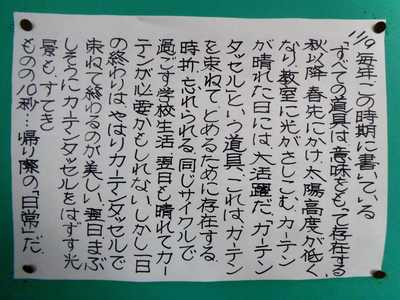 11/19 毎年、この時期に書いている
「すべての道具は、意味をもって存在する
秋以降、春先にかけ、太陽高度が低く
なり、教室に光がさしこむ。カーテン
が晴れた日には、大活躍だ。「カーテン
タッセル」という道具、これは、カーテン
を束ねて、とめるために存在する。
時折、忘れられる。同じサイクルで
過ごす学校生活、翌日も晴れてカー
テンが必要かもしれない。しかし、一日
の終わりは、やはりカーテンタッセルで
束ねて終わるのが美しい。翌日、まぶ
しそうにカーテンタッセルをはずす光
景も、すてき
ものの10秒…帰り際の「日常」だ。